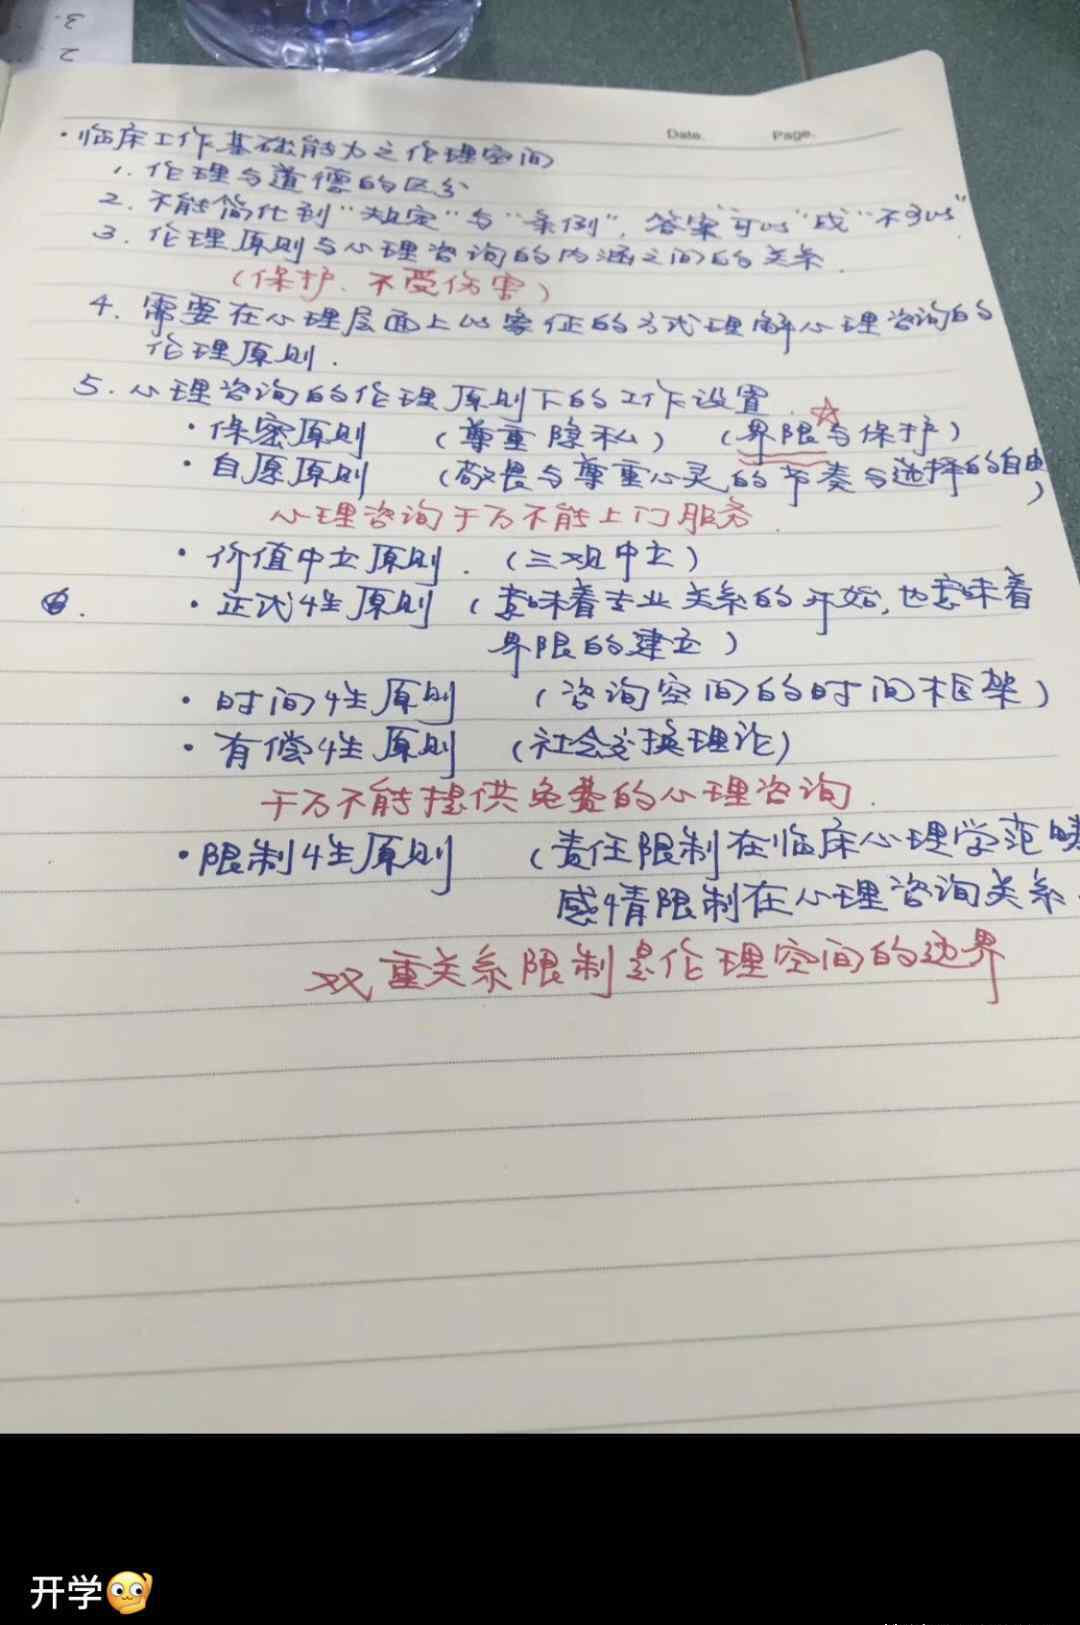 3.
2
Date.
Page.
·临床工作基础能力之伦理空间
1. 伦理与道德的区分
2. 不能简化到"规定"与"条例",答案"可以"或"不可以"
3. 伦理原则与心理咨询的内涵之间的关系.
(保护、不受伤害)
4. 需要在心理层面上以象征的方式理解心理咨询的
伦理原则.
5. 心理咨询的伦理原则下的工作设置.
·保密原则 (尊重隐私) (界限与保护) ☆
·自愿原则 (敬畏与尊重心灵的节奏与选择的自由)
心理咨询千万不能上门服务.
·价值中立原则. (三观中立)
6. ·正式性原则 (意味着专业关系的开始,也意味着
界限的建立)
·时间性原则 (咨询空间的时间框架)
·有偿性原则 (社会交换理论)
千万不能提供免费的心理咨询.
·限制性原则 (责任限制在临床心理学范畴
感情限制在心理咨询关系.
双重关系限制是伦理空间的边界
开学🫡